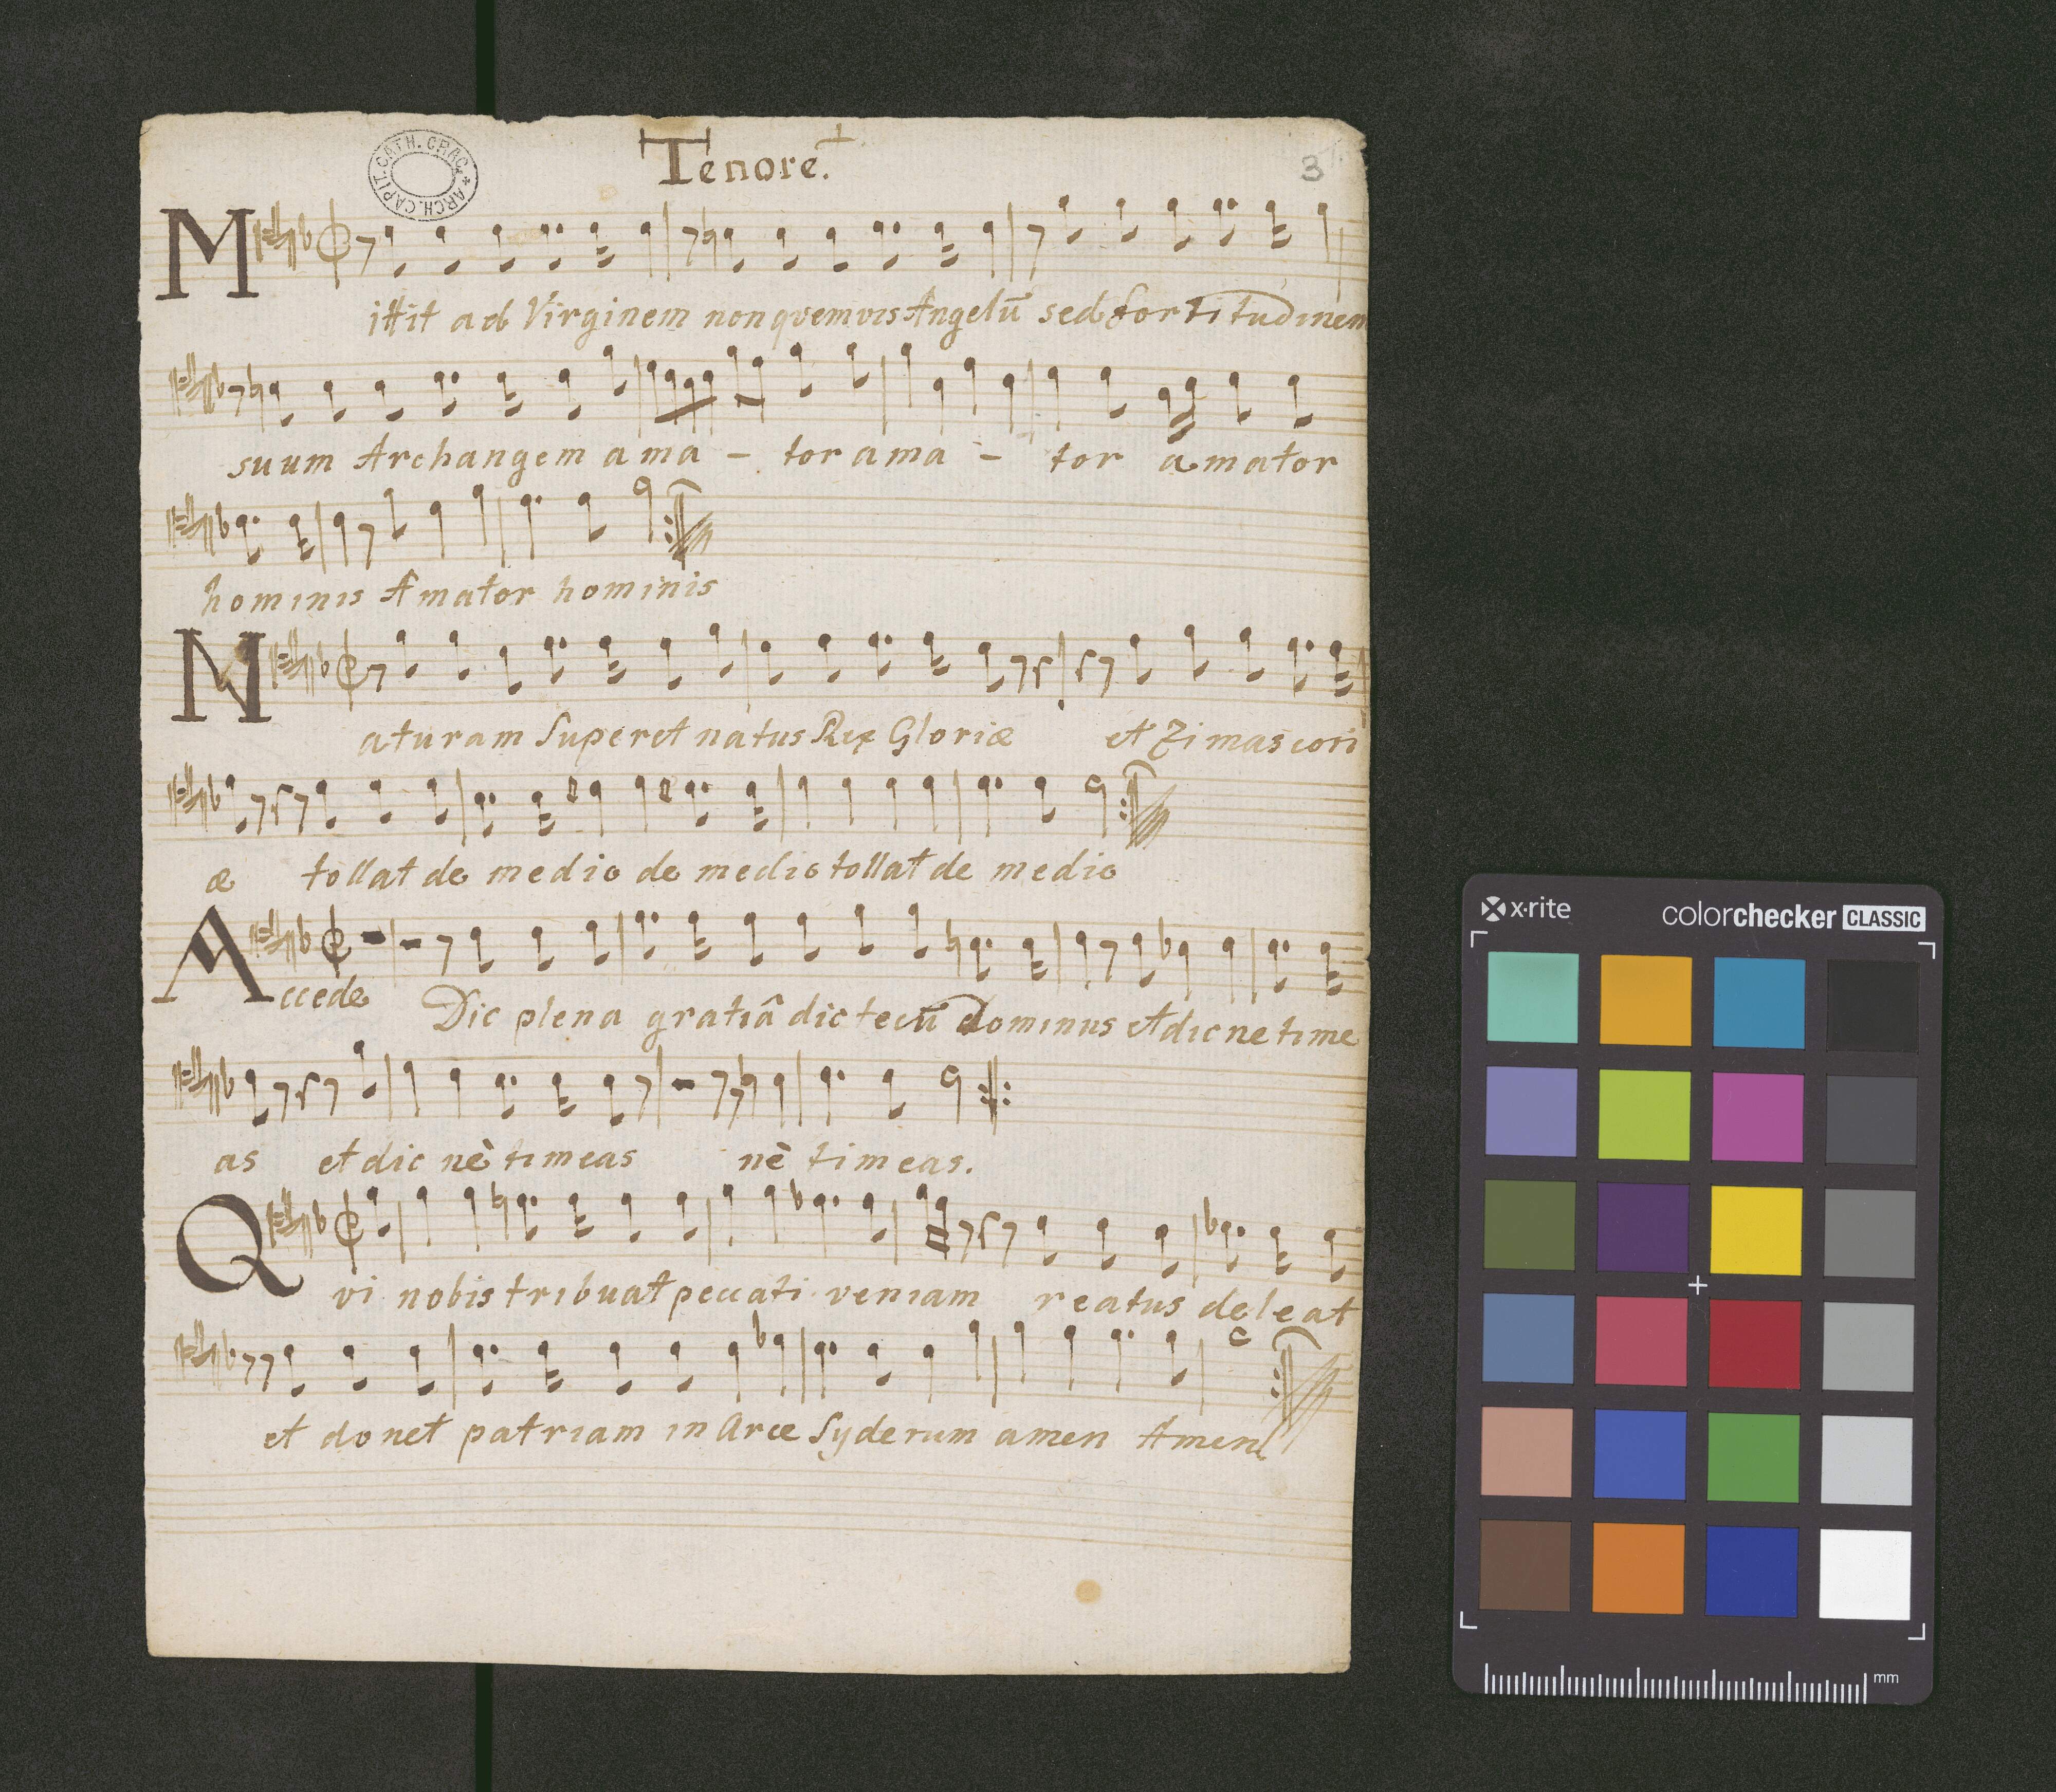 Tenore.
3
ARCH. CAPIT. CATH. CRAC.
Mittit ad Virginem non quemvis Angelū sed fortitudinem
suum Archangem ama - tor ama - tor amator
hominis Amator hominis
Naturam Superet natus Rex Gloriæ et Zimas cori
æ tollat de medio de medio tollat de medio
Accede Dic plena gratiâ dic tecū dominus et dic ne time
as et dic nè timeas nè timeas.
Qvi nobis tribuat peccati veniam reatus deleat
et donet patriam in Arce Syderum amen Amen
x·rite
colorchecker CLASSIC
mm